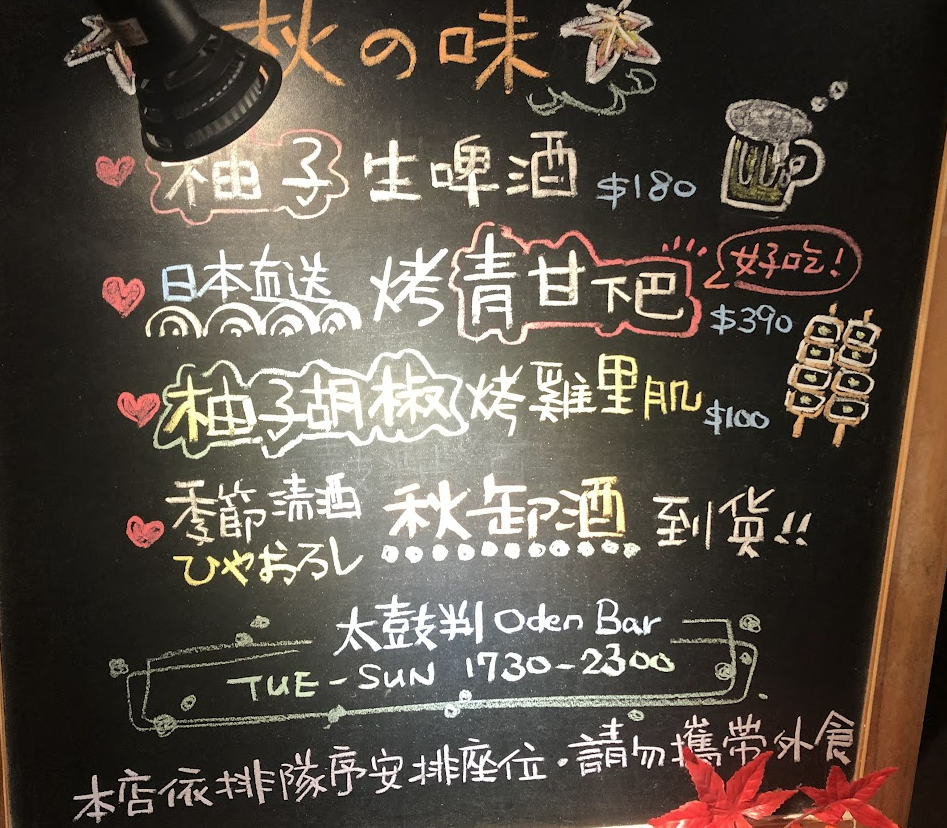 秋の味
柚子生啤酒 $180
日本直送 烤青甘下巴 $390 好吃!
柚子胡椒烤雞里肌 $100
季節清酒 秋卸酒 到貨!!
ひやおろし
太鼓判 Oden Bar
TUE - SUN 1730-2300
本店依排隊序安排座位・請勿攜帶外食